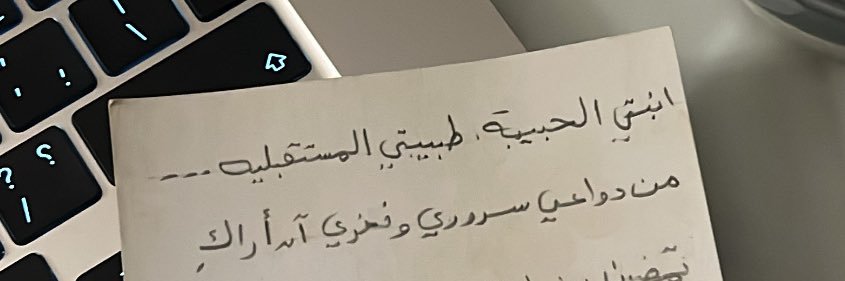 ابنتي الحبيبة. طبيبتي المستقبليه ---
من دواعي سروري وفخري أن أراكِ